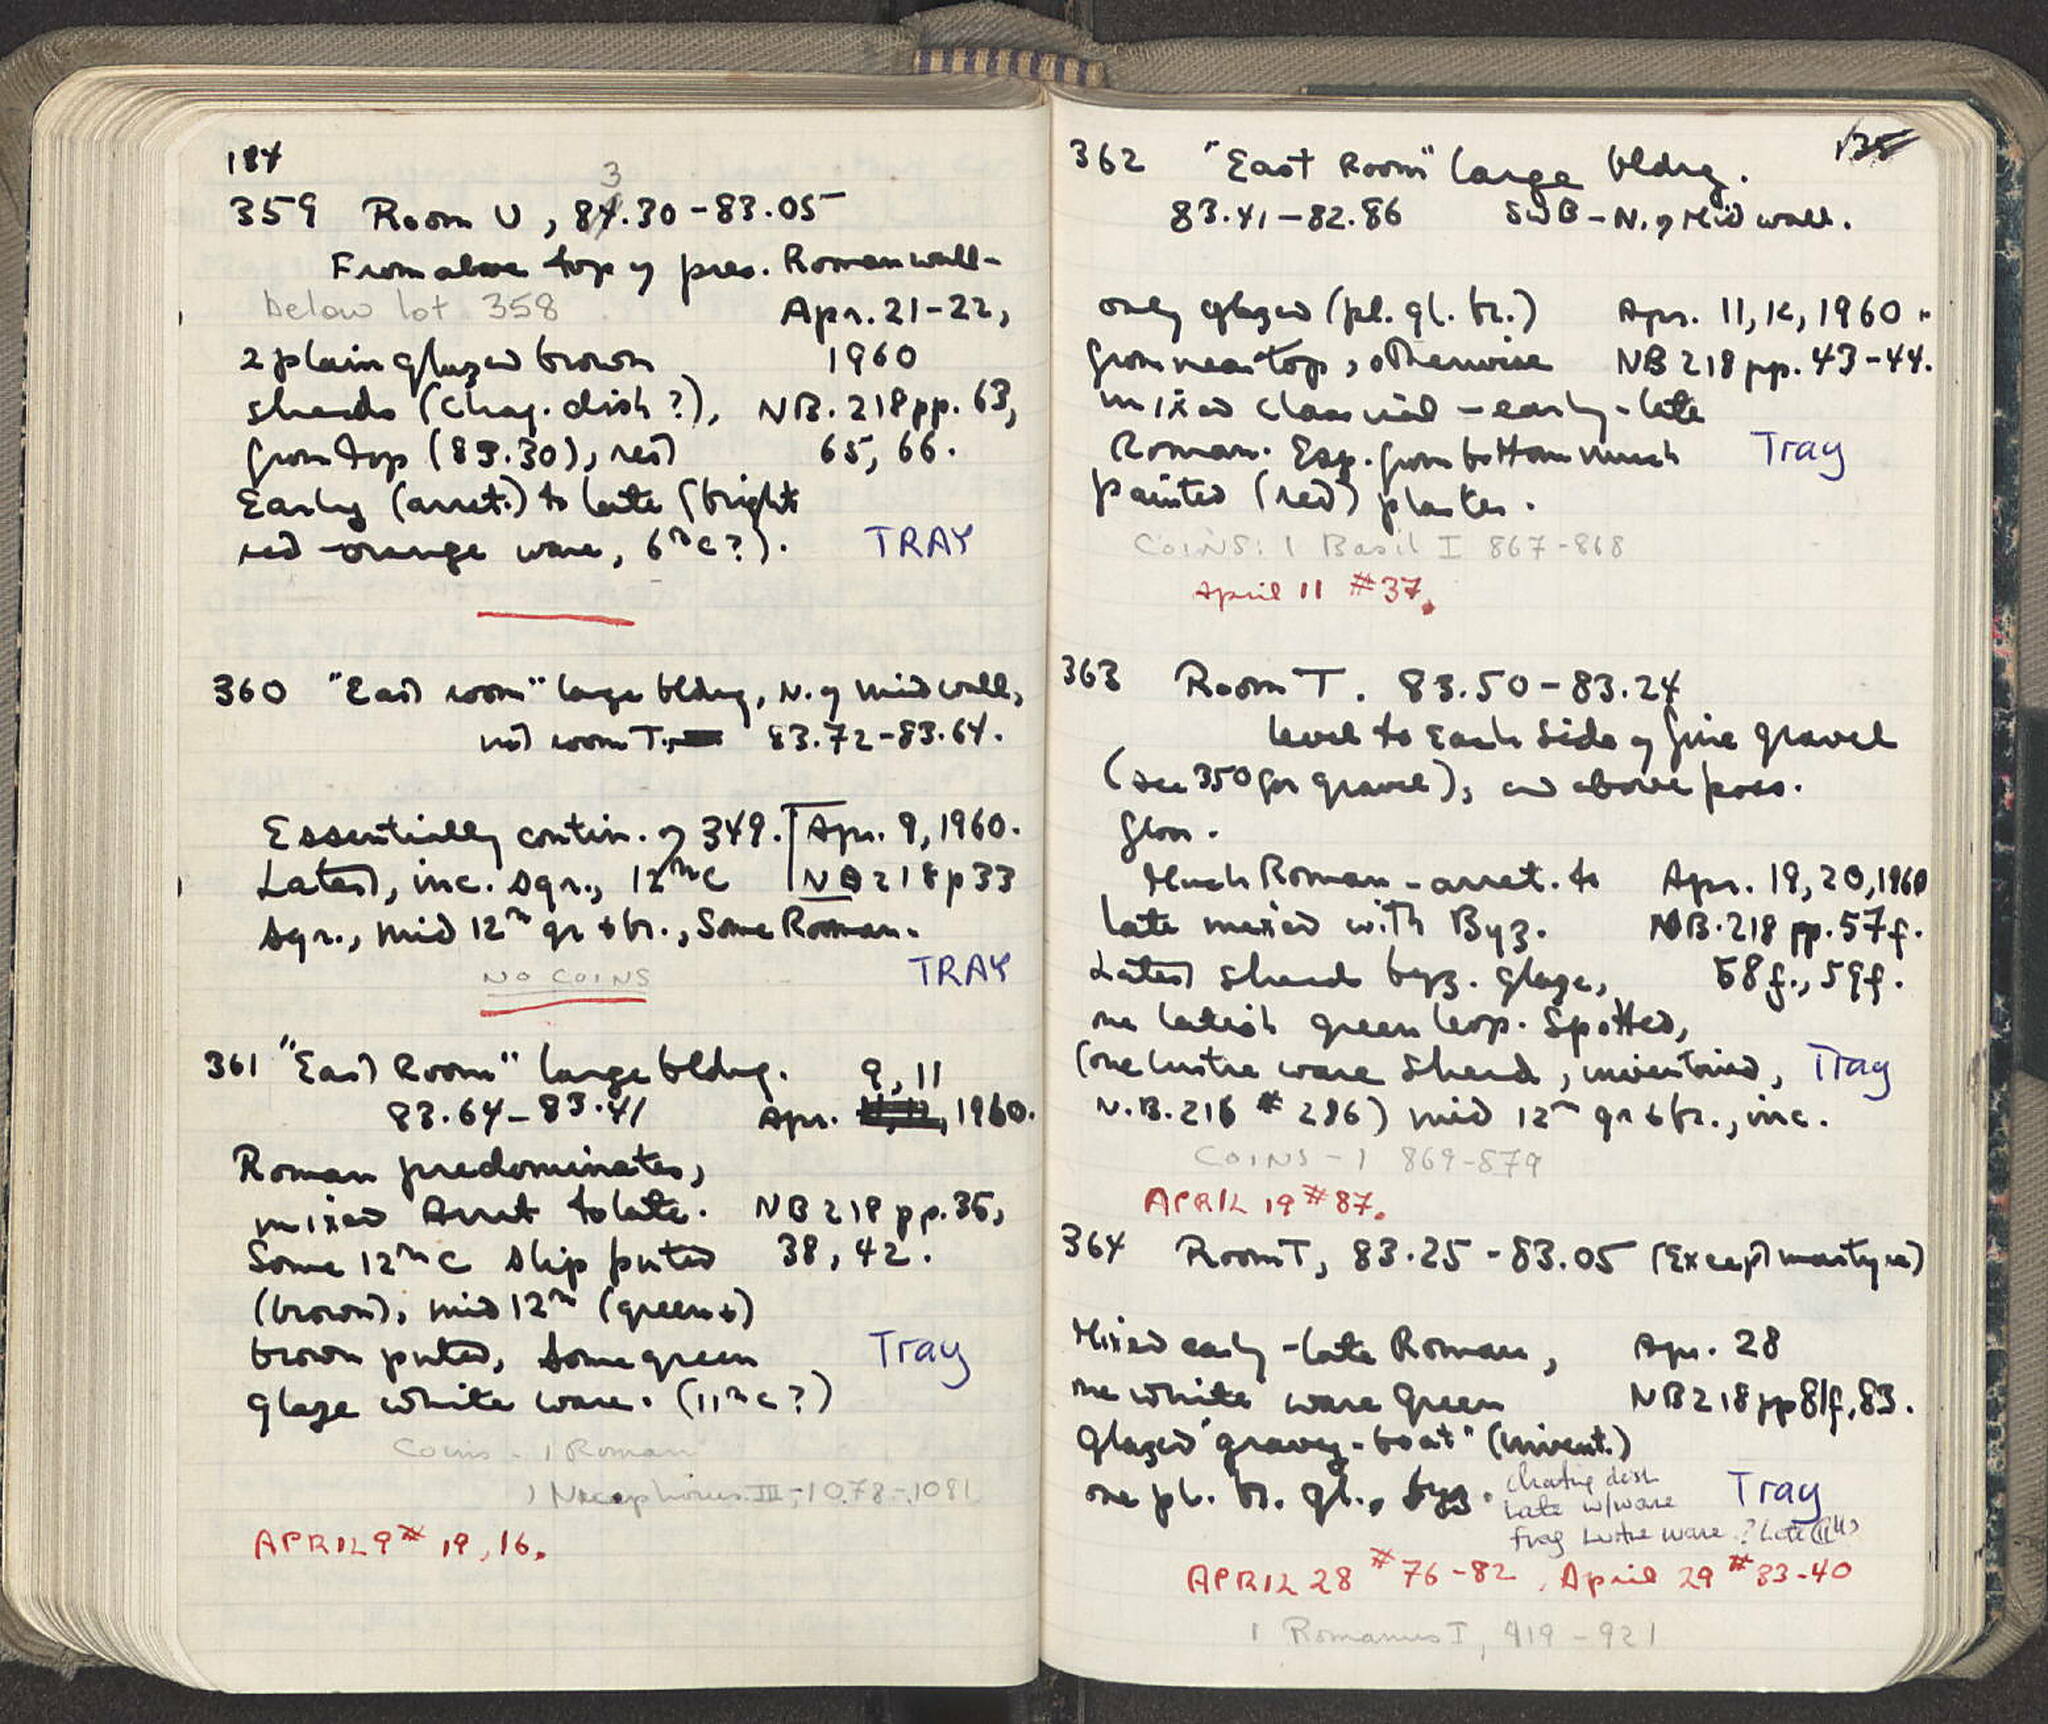 184
359 Room U, 83.30-83.05
From above top of pres. Roman wall-
below lot 358 Apr. 21-22,
2 plain glazed brown 1960
sherds (chag. dish?), NB. 218 pp. 63,
from top (83.30), rest 65, 66.
Early (arret.) to late (bright
red-orange ware, 6th c?). TRAY
360 "East room" large bldg, N. of mid wall,
not room T. 83.72-83.64.
Essentially contin. of 349. Apr. 9, 1960.
Latest, inc. sgr., 12th c NB 218 p 33
sgr., mid 12th gr & br., some Roman.
NO COINS TRAY
361 "East Room" large bldg. 9, 11
83.64-83.41 Apr. 1960.
Roman predominates,
mixed Arret to late. NB 218 pp. 35,
Some 12th C slip pnted 38, 42.
(brown), mid 12th (green &)
brown pnted, some green Tray
glaze white ware. (11th c?)
Coins - 1 Roman
1 Nicephorus III - 1078-1081
APRIL 9 # 19, 16.
135
362 "East Room" large bldg.
83.41-82.86 SWB - N. of Mid wall.
only glazed (pl. gl. br.) Apr. 11, 12, 1960.
from near top, otherwise NB 218 pp. 43-44.
mixed classical - early-late
Roman. Esp. from bottom much Tray
painted (red) plaster.
COINS: 1 Basil I 867-868
April 11 #37.
363 Room T. 83.50-83.24
level to each side of fine gravel
(see 350 for gravel), and above poss.
floor.
Much Roman - arret. to Apr. 19, 20, 1960
late mixed with Byz. NB. 218 pp. 57f.
Latest sherds byz. glaze, 58f., 59f.
one latish green leop. spotted,
(one lustre ware sherd, inventoried, Tray
N.B. 216 # 286) mid 12th gr & br., inc.
COINS - 1 869-879
APRIL 19 #87.
364 Room T, 83.25-83.05 (Except)
Mixed early-late Roman, Apr. 28
one white ware green NB 218 pp 81f, 83.
glazed "gravy-boat" (invent.)
one pl. br. gl., byz. chafing dish Tray
late w/ware
frag lustre ware? Late
APRIL 28 #76-82, April 29 #33-40
1 Romanus I, 919-921